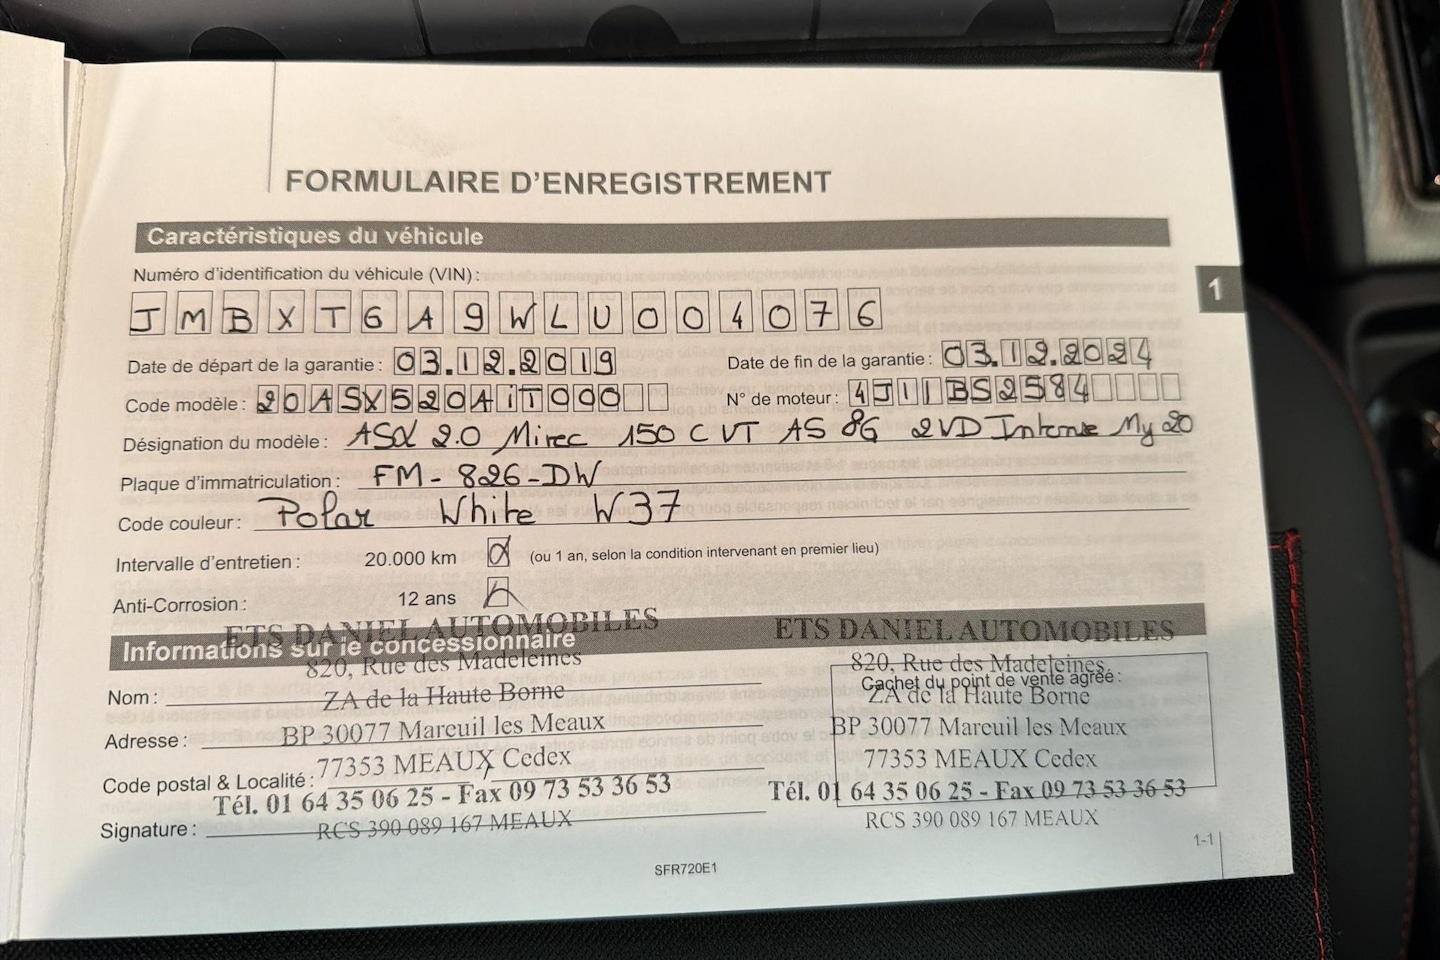 FORMULAIRE D'ENREGISTREMENT
Caractéristiques du véhicule
1
Numéro d'identification du véhicule (VIN) :
JMBXTGA9WLU004076
Date de départ de la garantie : 03.12.2019 Date de fin de la garantie : 03.12.2024
Code modèle : 20ASX520AiT000 N° de moteur : 4J11BS2584
Désignation du modèle : ASX 2.0 Mivec 150 CVT AS&G 2WD Intense My 20
Plaque d'immatriculation : FM-826-DW
Code couleur : Polar White W37
Intervalle d'entretien : 20.000 km (ou 1 an, selon la condition intervenant en premier lieu)
Anti-Corrosion : 12 ans
Informations sur le concessionnaire
ETS DANIEL AUTOMOBILES
820, Rue des Madeleines
Nom : ZA de la Haute Borne
Adresse : BP 30077 Mareuil les Meaux
Code postal & Localité : 77353 MEAUX Cedex
Tél. 01 64 35 06 25 - Fax 09 73 53 36 53
Signature : RCS 390 089 167 MEAUX
ETS DANIEL AUTOMOBILES
820, Rue des Madeleines
Cachet du point de vente agréé :
ZA de la Haute Borne
BP 30077 Mareuil les Meaux
77353 MEAUX Cedex
Tél. 01 64 35 06 25 - Fax 09 73 53 36 53
RCS 390 089 167 MEAUX
1-1
SFR720E1